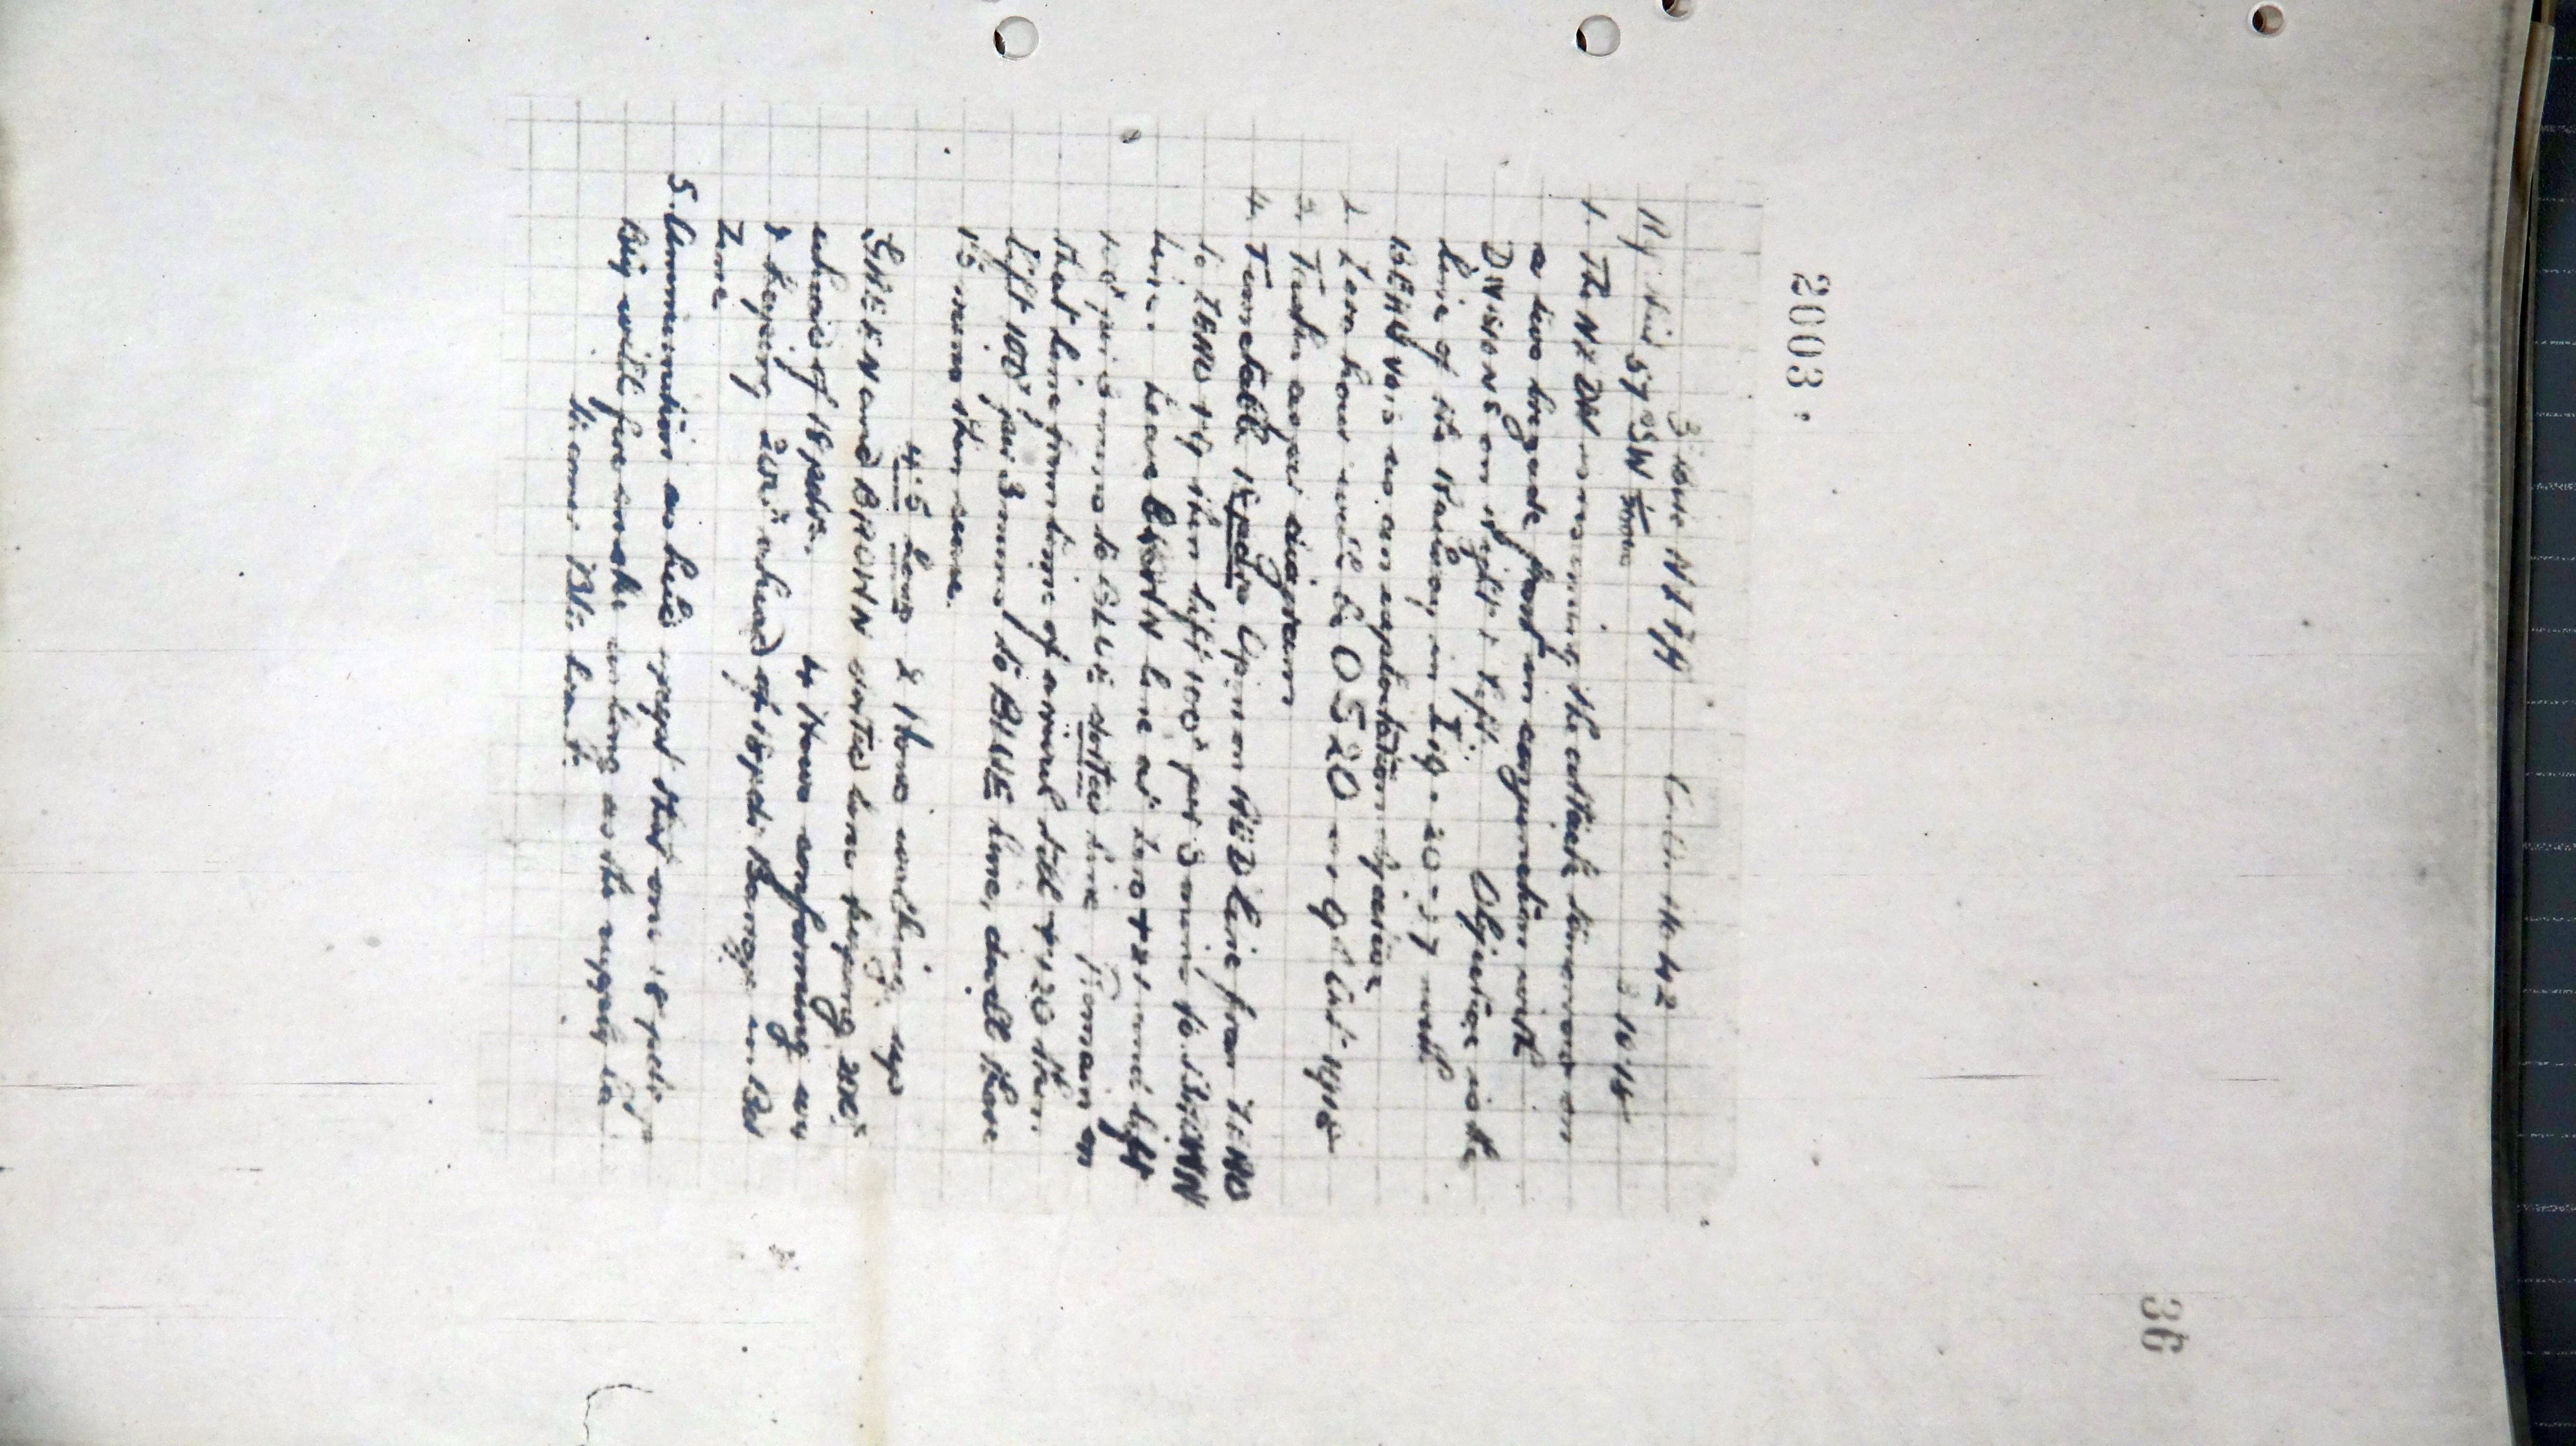 36
2003:
3 Bde NZFA Order No 42
Ref Sheet 57 B SW 1/20000 10-18
1. The NZ Div is resuming the attack tomorrow on
a two brigade front in conjunction with
DIVISIONS on right & left. Objective is the
line of the Railway in I 9 - 20 - 27 with
as an exploitation objective
2. Zero hour will be 0520 on 9 Oct 1918
3. Tasks as per diagram
4. Timetable 18 pdrs Open on RED line from ZERO
to ZERO +4 then lift 100x per 3 mins to BROWN
line. Leave BROWN line at Zero +21 and lift
100x per 3 mins to BLUE dotted line Remain on
that line from time of arrival till +120 then
lift 100x per 3 mins to BLUE line, dwell there
15 mins then cease.
4.5 hows 2 Hows walking up
GREEN and BROWN dotted line keeping 200x
ahead of 18 pdrs. 4 Hows conforming
& keeping 200x ahead of 18 pdr Barrage in Bde
Zone
5. Ammunition as held except that one 18 pdr
Bty will fire smoke as long as the supply